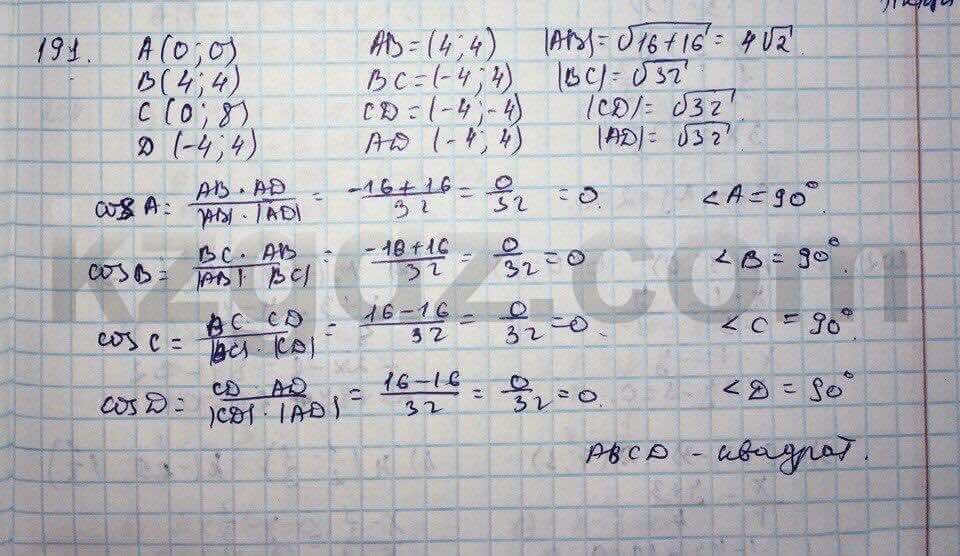 191. A(0;0) AB=(4;4) |AB|=√16+16=4√2
B(4;4) BC=(-4;4) |BC|=√32
C(0;8) CD=(-4;-4) |CD|=√32
D(-4;4) AD(-4;4) |AD|=√32
cosA= AB·AD/|AB|·|AD| = -16+16/32 = 0/32 =0. <A=90°
cosB= BC·AB/|AB| |BC| = -16+16/32 = 0/32 =0 <B=90°.
cosC= BC CD/|BC|·|CD| = 16-16/32 = 0/32 =0. <C=90°
cosD= CD·AD/|CD|·|AD| = 16-16/32 = 0/32 =0. <D=90°
ABCD - квадрат.
kzgdz.com